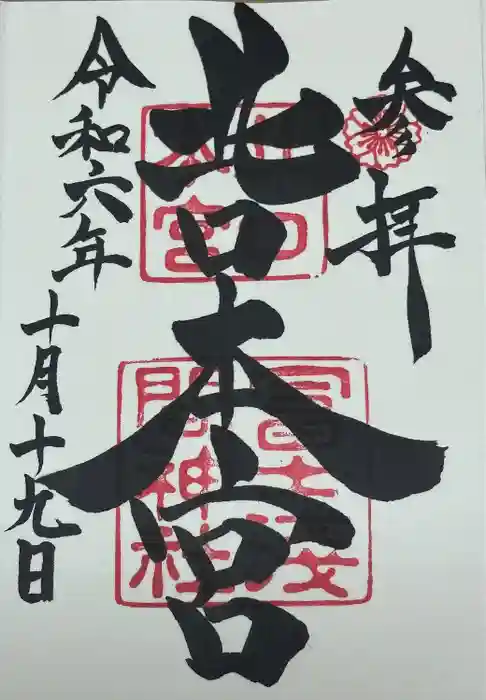 参拝
北口本宮
冨士浅間神社
令和六年
十月十九日